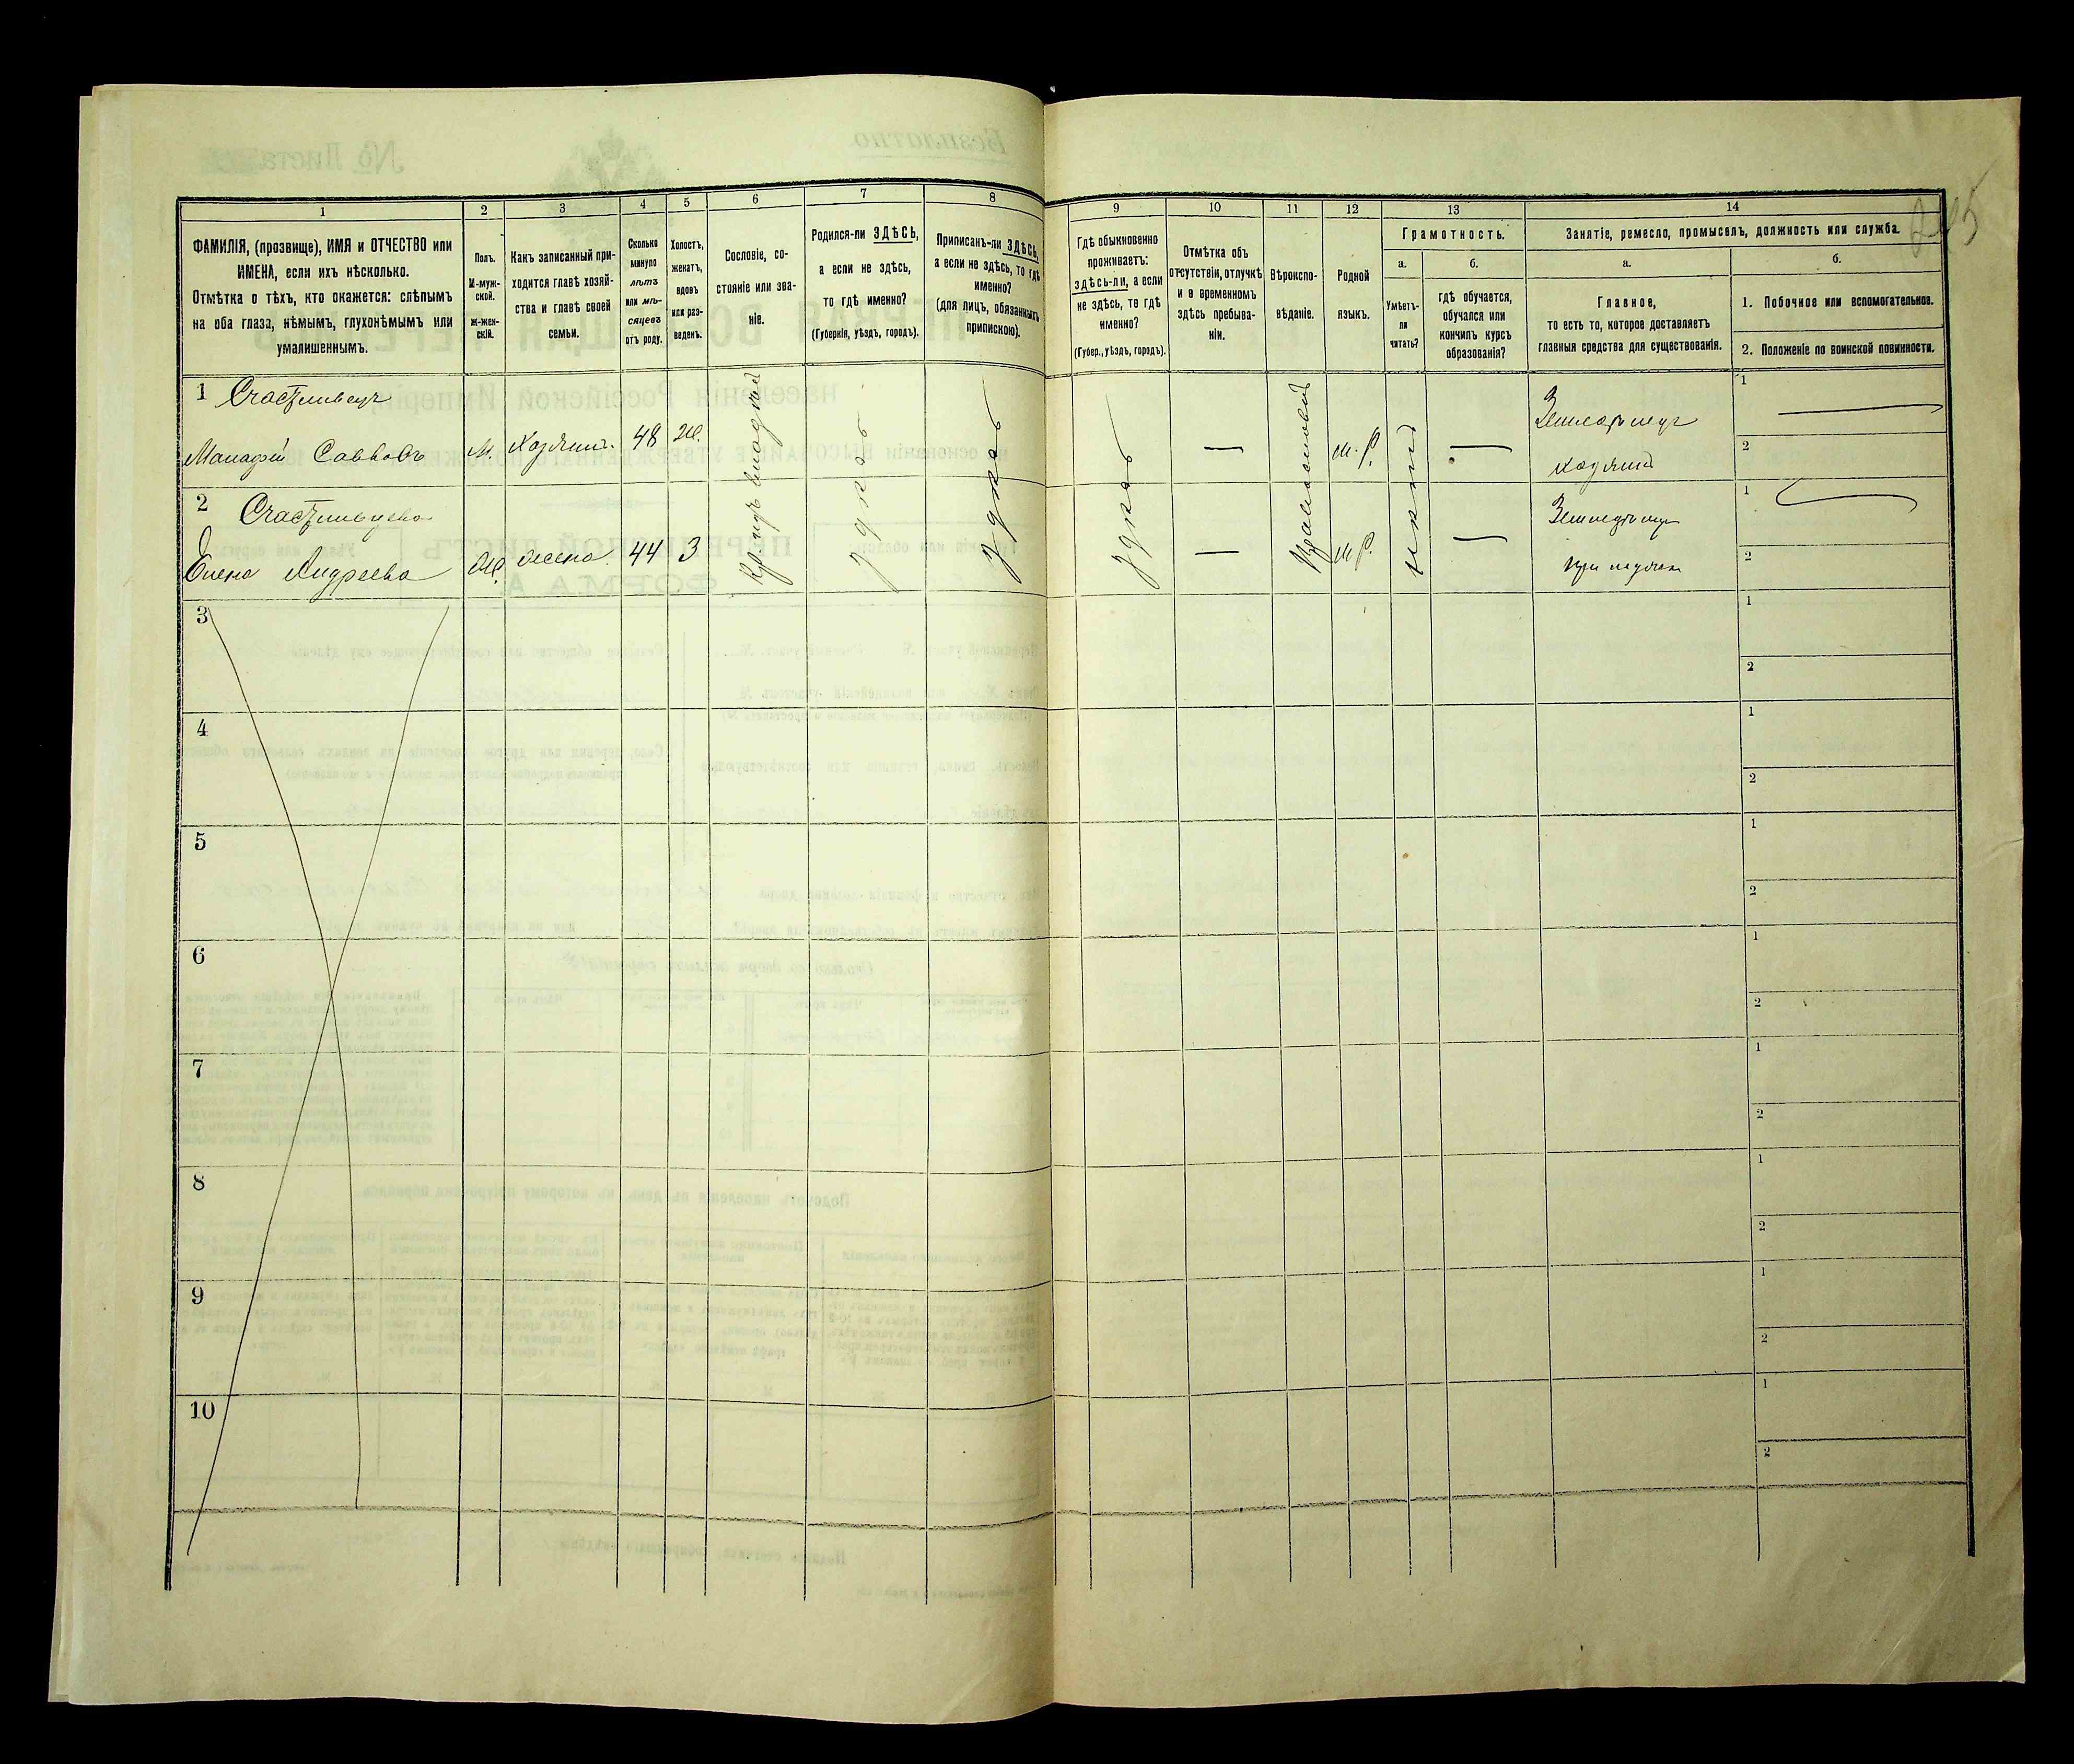 245
1
2
3
4
5
6
7
8
9
10
11
12
13
14
ФАМИЛІЯ, (прозвище), ИМЯ и ОТЧЕСТВО или
ИМЕНА, если ихъ нѣсколько.
Отмѣтка о тѣхъ, кто окажется: слѣпымъ
на оба глаза, нѣмымъ, глухонѣмымъ или
умалишеннымъ.
Полъ.
М-муж-
ской.
ж-жен-
скій.
Какъ записанный при-
ходится главѣ хозяй-
ства и главѣ своей
семьи.
Сколько
минуло
лѣтъ
или мѣ-
сяцевъ
отъ роду.
Холостъ,
женатъ,
вдовъ
или раз-
веденъ.
Сословіе, со-
стояніе или зва-
ніе.
Родился-ли ЗДѢСЬ,
а если не здѣсь,
то гдѣ именно?
(Губернія, уѣздъ, городъ).
Приписанъ-ли ЗДѢСЬ,
а если не здѣсь, то гдѣ
именно?
(для лицъ, обязанныхъ
припискою).
Гдѣ обыкновенно
проживаетъ:
ЗДѢСЬ-ли, а если
не здѣсь, то гдѣ
именно?
(Губер., уѣздъ, городъ).
Отмѣтка объ
отсутствіи, отлучкѣ
и о временномъ
здѣсь пребыва-
ніи.
Вѣроиспо-
вѣданіе.
Родной
языкъ.
Грамотность.
а.
Умѣетъ-
ли
читать?
б.
гдѣ обучается,
обучался или
кончилъ курсъ
образованія?
Занятіе, ремесло, промыселъ, должность или служба.
а.
Главное,
то есть то, которое доставляетъ
главныя средства для существованія.
б.
1. Побочное или вспомогательное.
2. Положеніе по воинской повинности.
1 Счастливецъ
Манафій Саввовъ М. Хозяинъ. 48 Ж. — м. р. — Землѣдѣлецъ
хозяинъ
1
2
2 Счастливцева
Елена Андреева Ж. жена. 44 З — м. р. — Землед.
при мужѣ
1
2
Кр. изъ владѣл.
здѣсь
здѣсь
здѣсь
Православной
нѣтъ
3
1
2
4
1
2
5
1
2
6
1
2
7
1
2
8
1
2
9
1
2
10
1
2